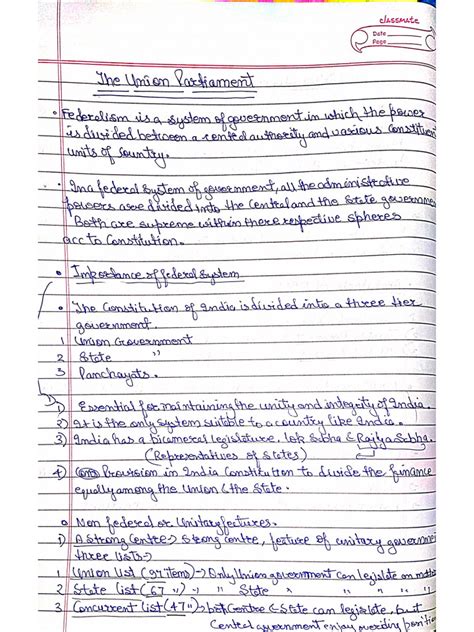 classmate
Date
Page
The Union Parliament
• Federalism is a system of government in which the power
is divided between a central authority and various constituent
units of country.
• In a federal system of government, all the administrative
powers are divided into the Central and the State governme
Both are supreme within there respective spheres
acc to Constitution.
• Importance of federal System
• The Constitution of India is divided into a three tier
government.
1 Union Government
2 State "
3 Panchayats.
1) Essential for maintaining the unity and integrity of India.
2) It is the only system suitable to a country like India.
3) India has a bicameral legislature. Lok Sabha & Rajya Sabha.
(Representatives of States)
4) Provision in India Constitution to divide the finance
equally among the Union & the State.
o Non federal or Unitary features.
1) A Strong Centre → Strong centre, feature of unitary governme
three lists →
1 Union List (97 items) → Only Union government can legislate on matte
2 State list (67 ") → " State " " " "
3 Concurrent list (47 ") → both Centre & State can legislate, but
Central government enjoy overiding positi